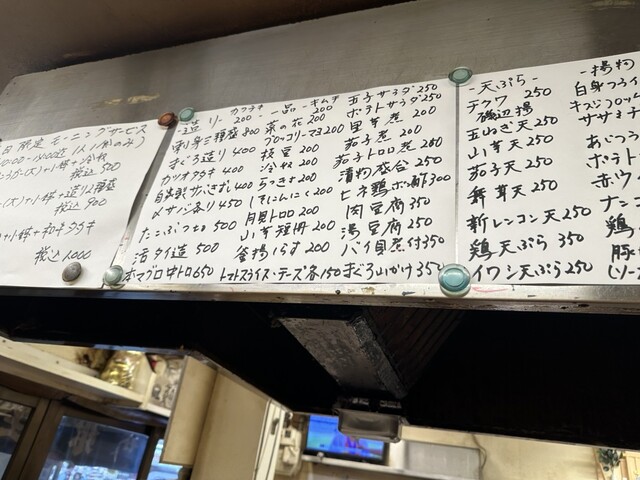 日限定モーニングサービス
税込 500
税込 900
税込 1000
造り
刺身三種盛 800
まぐろ造り 400
カツオタタキ 400
自家製サバきずし 400
〆サバ造り 450
たこぶつ 500
活タイ造 500
本マグロ中トロ 650
一品
キムチ 200
菜の花 200
ブロッコリーマヨ 200
枝豆 200
冷奴 200
らっきょ 200
にんにく 200
月見トロロ 200
山芋短冊 200
釜揚しらす 200
トマトスライス・チーズ各150
玉子サラダ 250
ポテトサラダ 250
里芋煮 200
茄子煮 200
茄子トロロ煮 250
漬物盛合 250
ヒネ鶏ポン酢 300
肉豆腐 350
湯豆腐 250
バイ貝煮付 350
まぐろ山かけ 350
-天ぷら-
チクワ 250
磯辺揚
玉ねぎ天 250
山芋天 250
茄子天 250
舞茸天 250
新レンコン天 250
鶏天ぷら 350
イワシ天ぷら 250
-揚物
白身フライ
あじフラ
ポテト
赤ウ
ナンコ
鶏
豚
(ソー